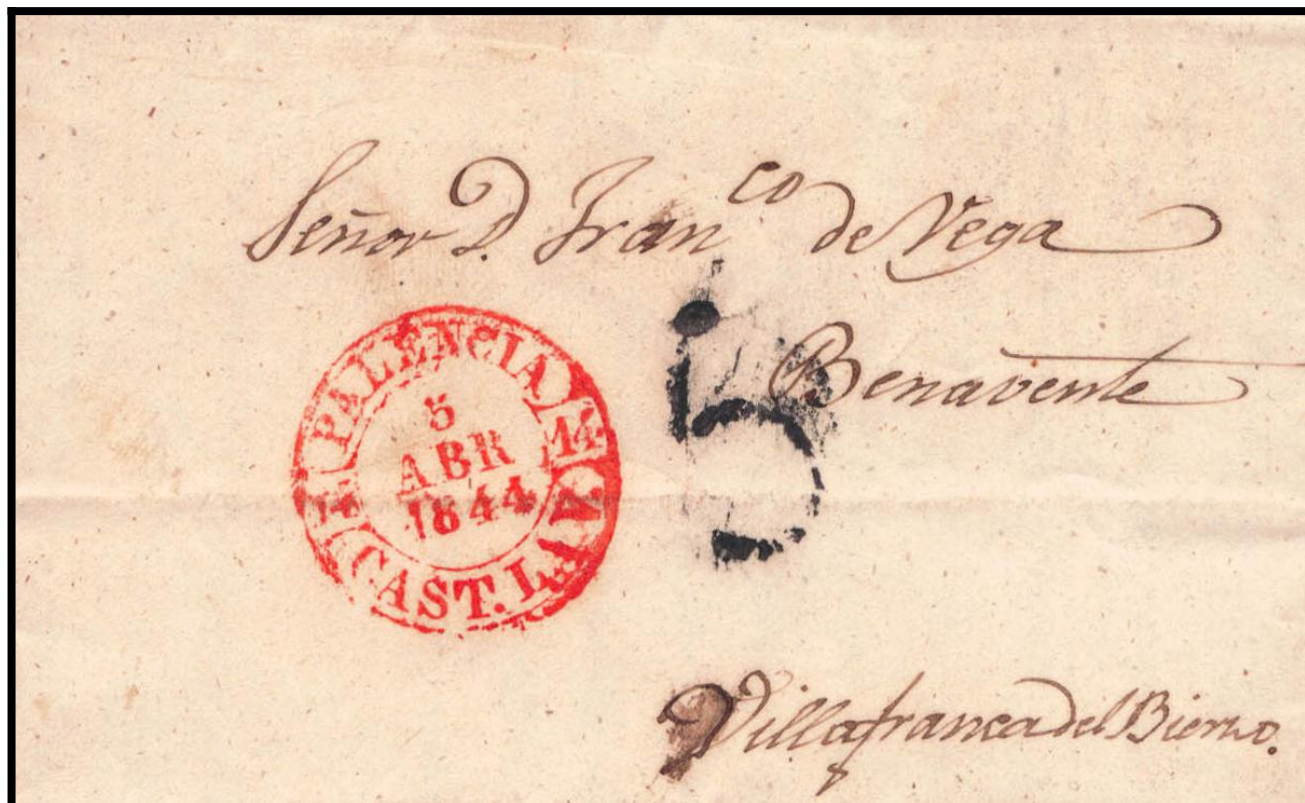 Señor D. Fran.co de Vega
Benavente
PALENCIA
14
5
ABR
1844
CAST. LA V.
5
Villafranca del Bierzo.